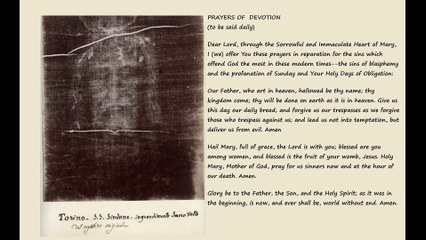 PRAYERS OF DEVOTION
(to be said daily)
Dear Lord, through the Sorrowful and Immaculate Heart of Mary,
I (we) offer You these prayers in reparation for the sins which
offend God the most in these modern times--the sins of blasphemy
and the profanation of Sunday and Your Holy Days of Obligation:
Our Father, who art in heaven, hallowed be thy name; thy
kingdom come; thy will be done on earth as it is in heaven. Give us
this day our daily bread; and forgive us our trespasses as we forgive
those who trespass against us; and lead us not into temptation, but
deliver us from evil. Amen
Hail Mary, full of grace, the Lord is with you; blessed are you
among women, and blessed is the fruit of your womb, Jesus. Holy
Mary, Mother of God, pray for us sinners now and at the hour of
our death. Amen.
Glory be to the Father, the Son, and the Holy Spirit; as it was in
the beginning, is now, and ever shall be, world without end. Amen.
Torino - S.S. Sindone - ingrandimento Sacro Volto